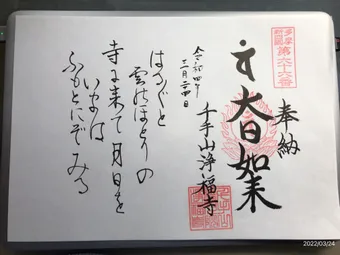 多摩
新四国
第六十六番
奉納
大日如来
千手山浄福寺
令和四年
三月二十四日
はるばると
雲のほとりの
寺に来て月日を
いまは
ふもとにぞみる
2022/03/24